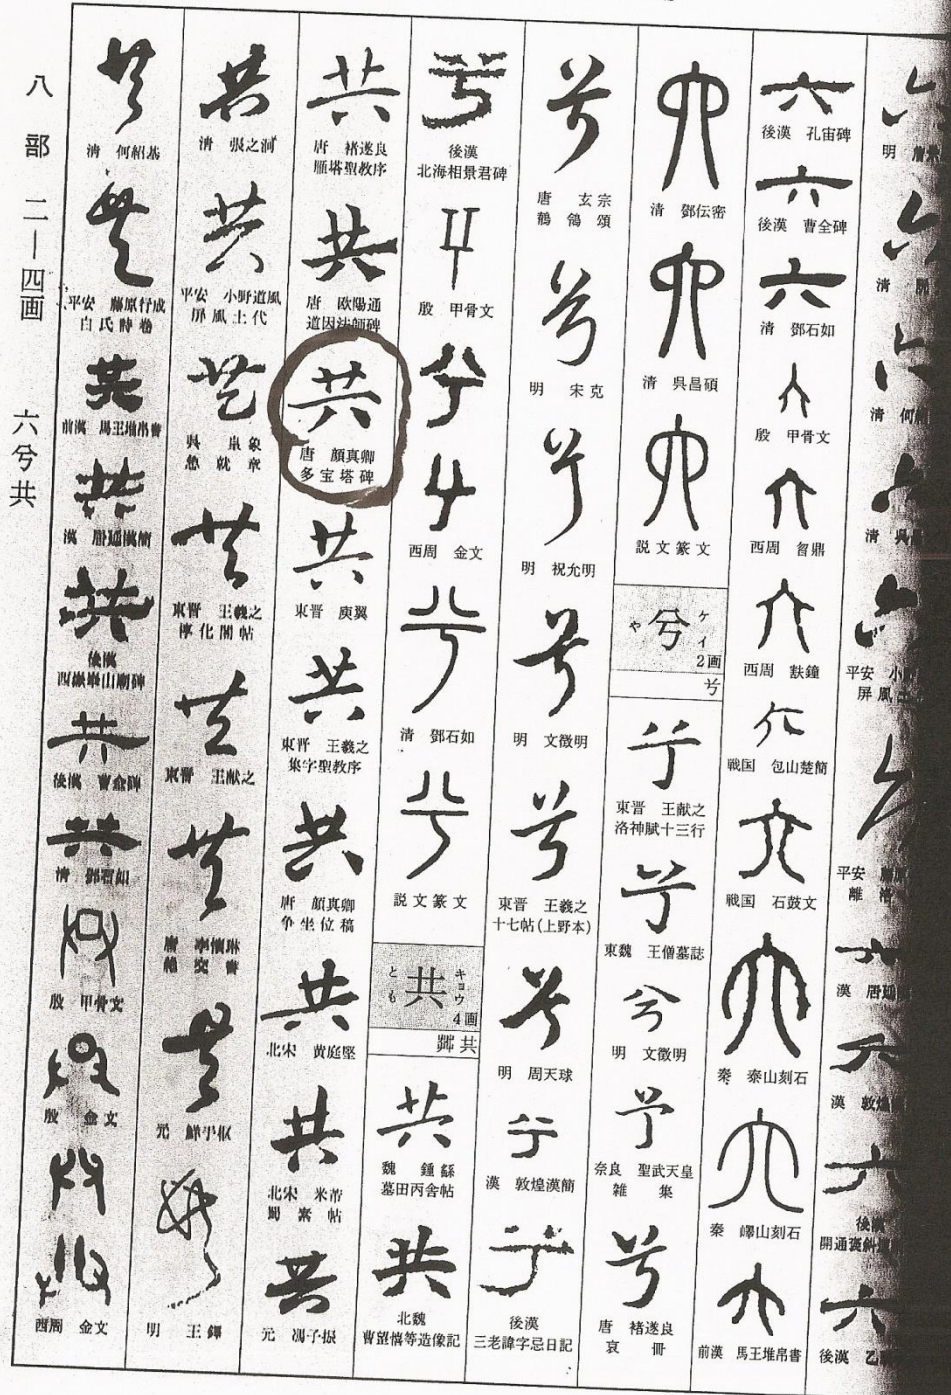 明
清
清
清
平安
平安
漢
漢
後漢
後漢 乙
後漢 孔宙碑
後漢 曹全碑
清 鄧石如
殷 甲骨文
西周 曶鼎
西周 㝬鐘
戦国 包山楚簡
戦国 石鼓文
秦 泰山刻石
秦 嶧山刻石
前漢 馬王堆帛書
清 鄧伝密
清 呉昌碩
説文篆文
兮
ケイ
や
2画
東晋 王献之
洛神賦十三行
東魏 王僧墓誌
明 文徴明
奈良 聖武天皇
雑集
唐 褚遂良
哀冊
唐 玄宗
鶺鴒頌
明 宋克
明 祝允明
明 文徴明
東晋 王羲之
十七帖(上野本)
明 周天球
漢 敦煌漢簡
後漢
三老諱字忌日記
後漢
北海相景君碑
殷 甲骨文
西周 金文
清 鄧石如
説文篆文
共
キョウ
とも
4画
魏 鍾繇
墓田丙舎帖
北魏
曹望憘等造像記
唐 褚遂良
雁塔聖教序
唐 欧陽通
道因法師碑
共
唐 顔真卿
多宝塔碑
東晋 庾翼
東晋 王羲之
集字聖教序
唐 顔真卿
争坐位稿
北宋 黄庭堅
北宋 米芾
蜀素帖
元 馮子振
清 張之洞
平安 小野道風
屏風土代
呉 皇象
急就章
東晋 王羲之
淳化閣帖
東晋 王献之
唐 李懐琳
絶交書
元 鮮于枢
明 王鐸
清 何紹基
平安 藤原行成
白氏詩巻
前漢 馬王堆帛書
漢 居延漢簡
後漢
西嶽華山廟碑
後漢 曹全碑
清 鄧石如
殷 甲骨文
殷 金文
西周 金文
八部 二―四画 六兮共